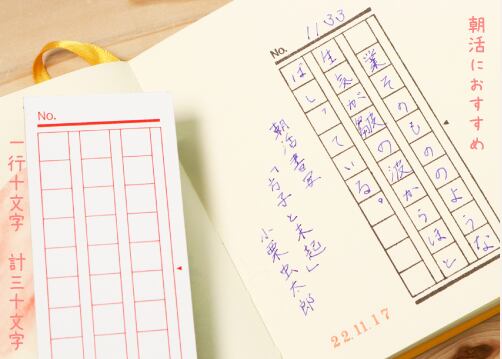 朝活におすすめ
No. 1133
業そのもののような
生気が皺の波からほと
ばしっている。
朝活書写「方子と末起」
小栗虫太郎
22.11.17
No.
一行十文字 計三十文字